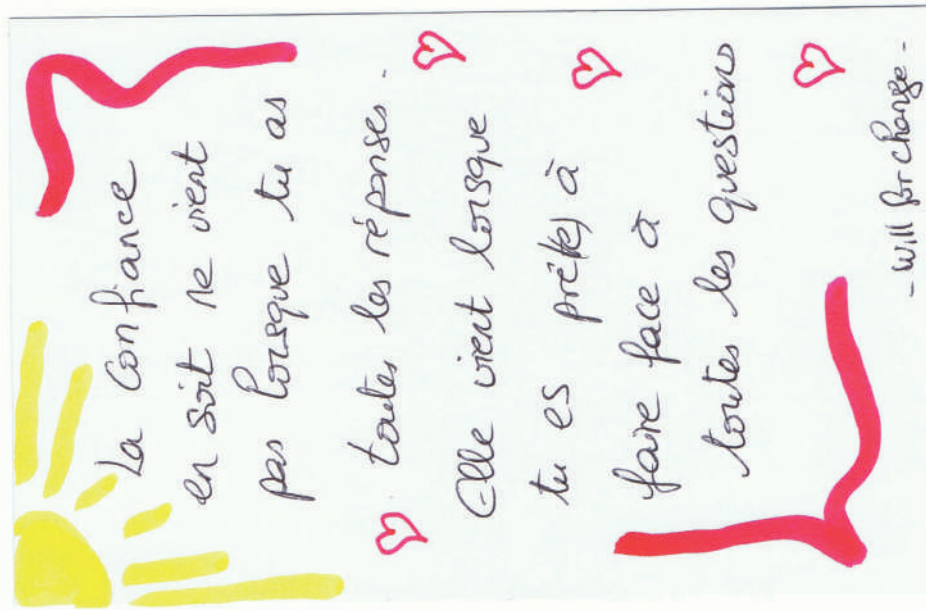 La Confiance
en soit ne vient
pas lorsque tu as
toutes les réponses.
Elle vient lorsque
tu es prêt(e) à
faire face à
toutes les questions
- Will for change -